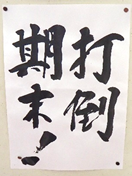 打倒
期末!